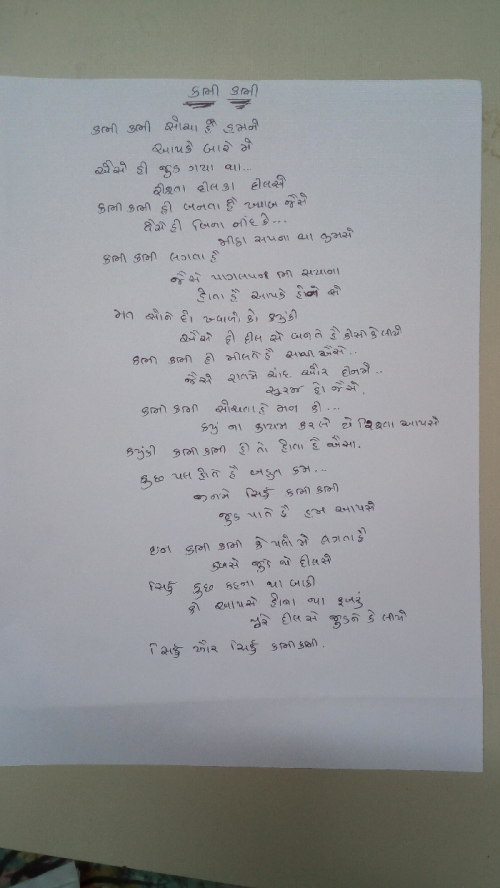 કભી કભી
કભી કભી સોચા હૈ હમને
આપકે બારે મેં
ઐસે હી જુડ ગયા થા...
રીશ્તા દીલકા દીલસે
કભી કભી હી બનતા હૈ ખ્વાબ જૈસે
વૈસે હી બિના નીંદ કે...
મીઠા સપના થા તુમસે
કભી કભી લગતા હૈ
જૈસે પાગલપન ભી સયાના
હોતા હૈ આપકે હોને સે
મત સોને દો ખ્વાબો કો ક્યુંકી
ઐસે હી દીલ સે બનતે હૈ કીસી કે લીયે
કભી કભી હી મીલતે હૈ સાથી ઐસે..
જૈસે રાતમે ચાંદ ઔર દીનમે..
સુરજ હો જૈસે.
કભી કભી સોચતા હૈ મન કી...
ક્યું ના કાયમ કરલે યે રિશ્તા આપસે
ક્યુંકી કભી કભી હી તો હોતા હૈ ઐસા.
કુછ પલ હોતે હૈ બહુત કમ...
જીનમે સિર્ફ કભી કભી
જુડ પાતે હૈ હમ આપસે
ઇન કભી કભી કે પલો મે લગતા હૈ
હમસે જુડે થે દીલસે
સિર્ફ કુછ કહના થા બાકી
જો આપસે હોના થા રૂબરૂ
પુરે દીલસે જુડને કે લીયે
સિર્ફ ઔર સિર્ફ કભી કભી.